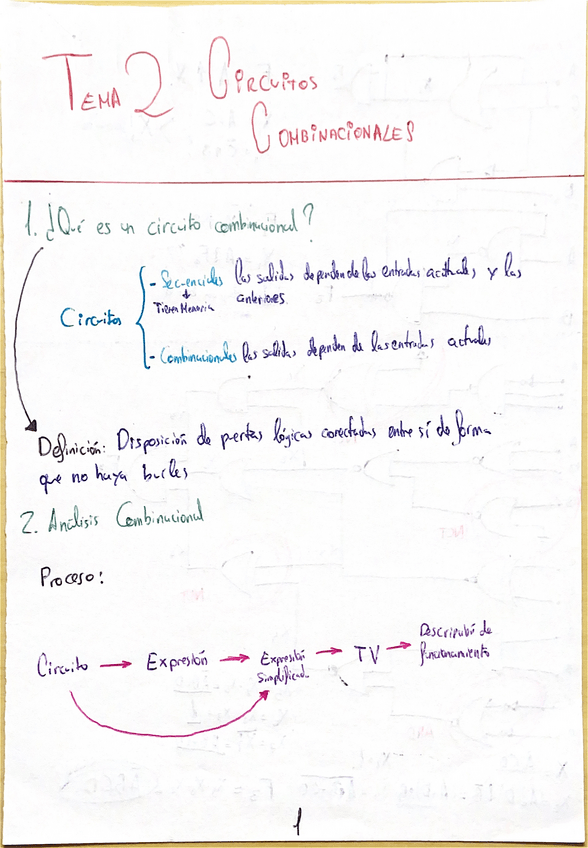 TEMA 2 CIRCUITOS
COMBINACIONALES
1. ¿Qué es un circuito combinacional?
Circuitos
- Secuenciales las salidas dependen de las entradas actuales y las
anteriores
Tienen Memoria
- Combinacionales las salidas dependen de las entradas actuales
Definición: Disposición de puertas lógicas conectadas entre sí de forma
que no haya bucles
2. Análisis Combinacional
Proceso:
Circuito → Expresión → Expresión → TV → Descripción de
simplificad. funcionamiento
1